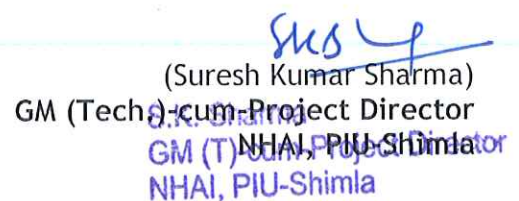 (Suresh Kumar Sharma)
GM (Tech.)-cum-Project Director
S.K. Sharma
NHAI, PIU-Shimla
GM (T)-cum-Project Director
NHAI, PIU-Shimla